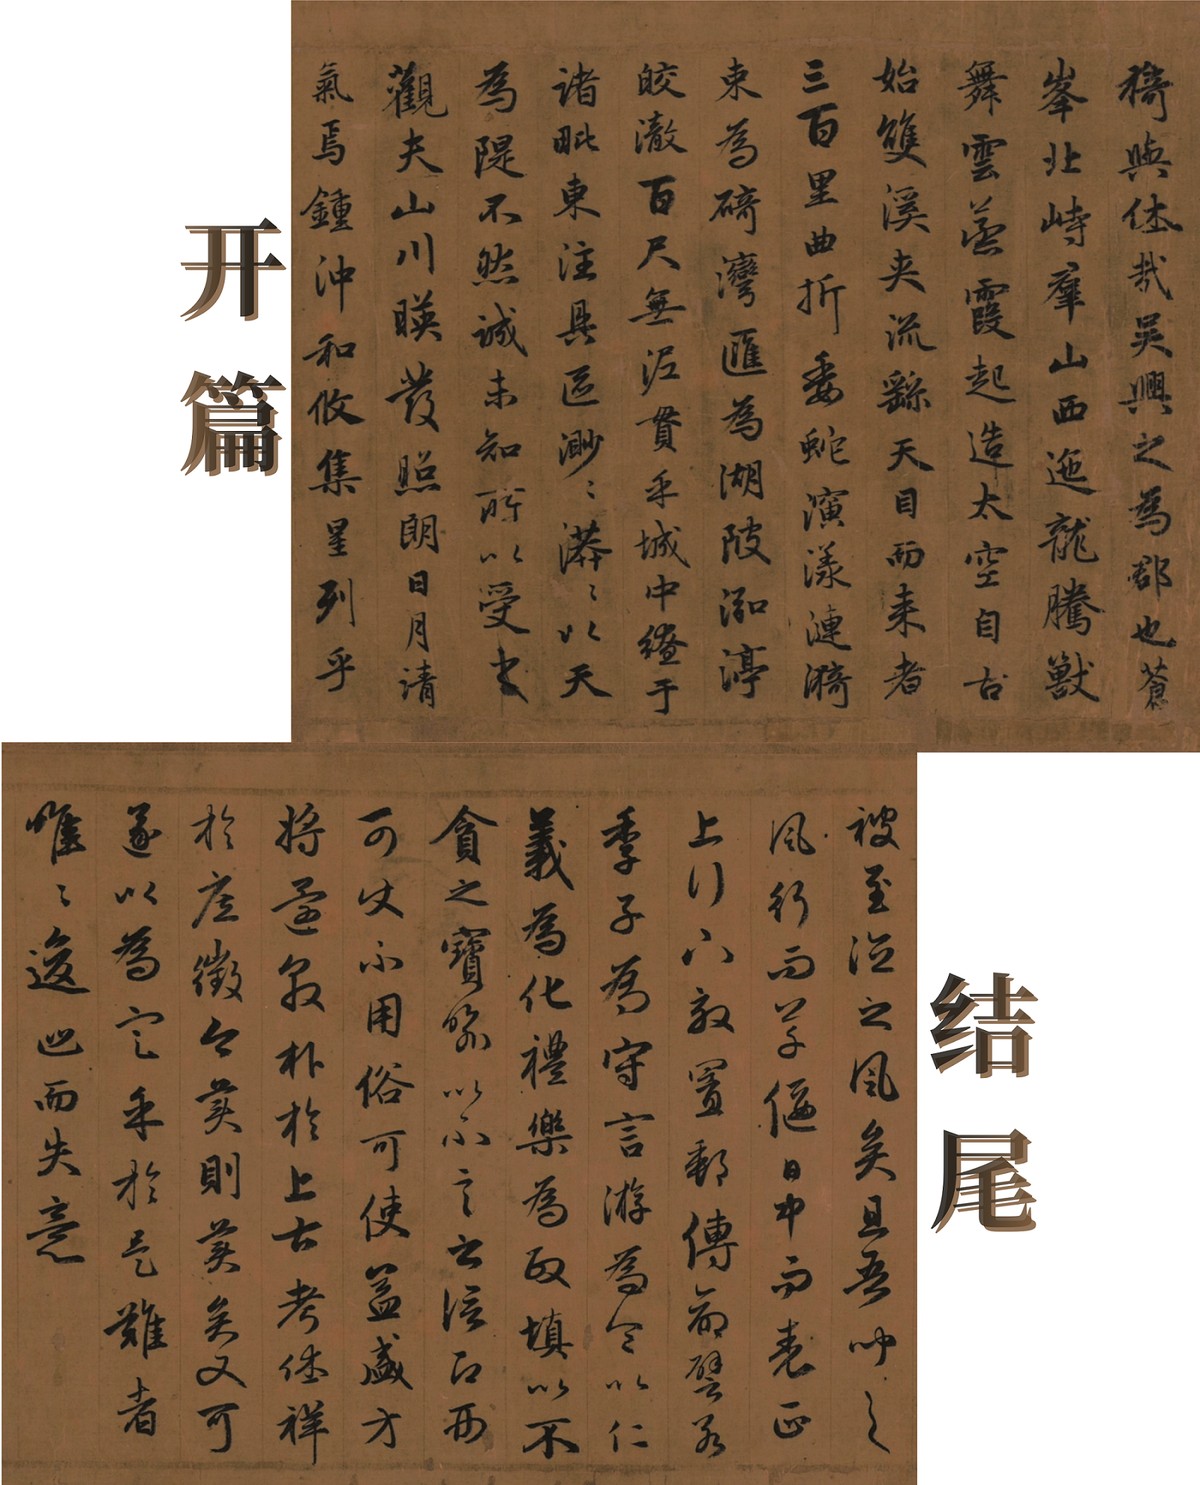 开篇
猗與休哉吳興之為郡也蒼
峯北峙羣山西迤龍騰獸
舞雲蒸霞起造太空自古
始雙溪夾流繇天目而來者
三百里曲折委蛇演漾漣漪
束為碕灣匯為湖陂泓渟
皎澈百尺無泥貫乎城中繚于
諸毗東注具區渺〻漭〻以天
為隄不然誠未知所以受之
觀夫山川暎發照朗日月清
氣焉鍾沖和攸集星列乎
结尾
被至治之風矣且吾聞之
風行而草偃日中而表正
上行下效置郵傳命譬若
季子為守言游為令以仁
義為化禮樂為政填以不
貪之寶以不言之信
可使不用俗可使益盛方
將還敦朴於上古考休祥
於庶徵令美則美矣又可
遂以為定乎於是難者
惟〻逡巡而失意